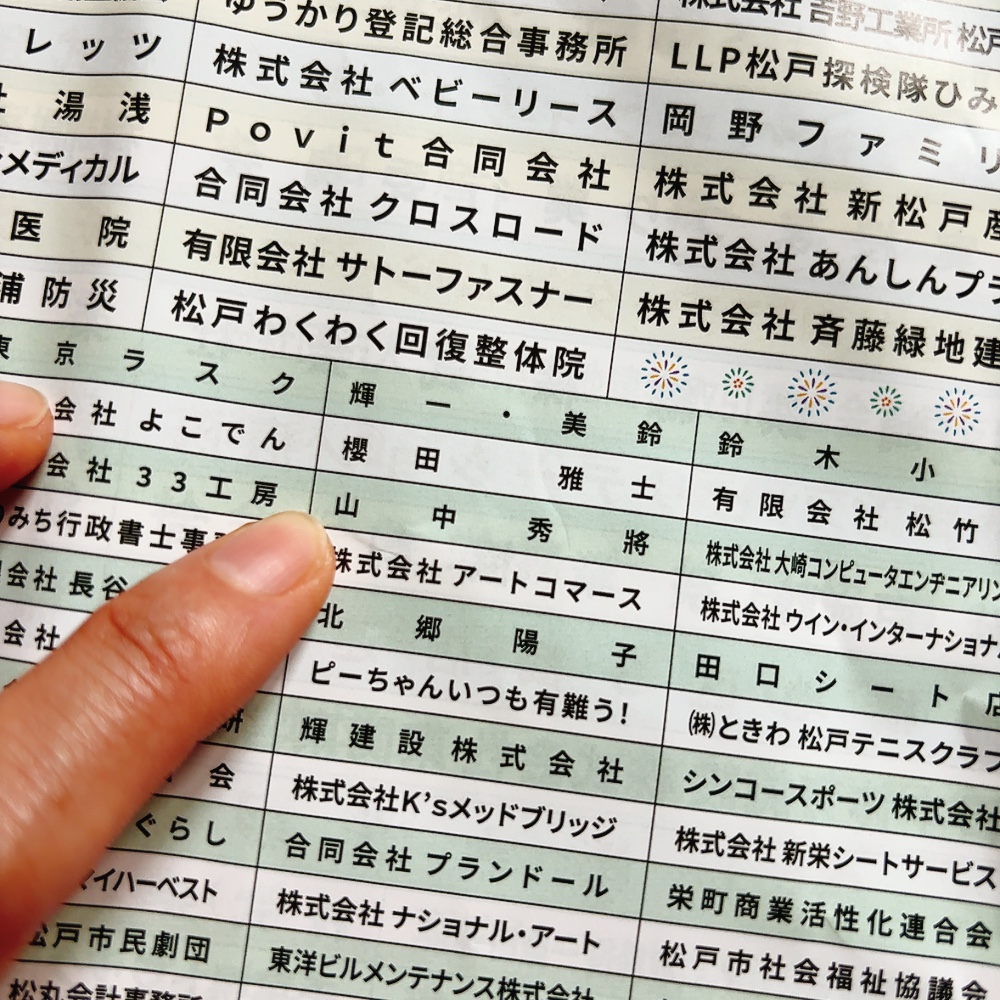 ゆうかり登記総合事務所
株式会社 吉野工業所 松戸
レッツ
株式会社 ベビーリース
LLP松戸探検隊ひみ
湯浅
Povit合同会社
岡野ファミリ
メディカル
合同会社 クロスロード
株式会社 新松戸産
医院
有限会社 サトーファスナー
株式会社 あんしんプラ
浦防災
松戸わくわく回復整体院
株式会社 斉藤緑地建
東京ラスク
輝一・美鈴
鈴木小
会社 よこでん
櫻田 雅士
有限会社 松竹
会社 33工房
山中秀將
株式会社 大崎コンピュータエンヂニアリン
みち行政書士事
株式会社 アートコマース
株式会社 ウイン・インターナショナ
会社 長谷
北郷陽子
田口シート店
会社
ピーちゃんいつも有難う!
㈱ときわ 松戸テニスクラブ
研
輝建設株式会社
シンコースポーツ 株式会社
会
株式会社K'sメッドブリッジ
株式会社 新栄シートサービス
ぐらし
合同会社 プランドール
栄町商業活性化連合会
マイハーベスト
株式会社 ナショナル・アート
松戸市社会福祉協議会
松戸市民劇団
東洋ビルメンテナンス株式会社
松丸会計事務所